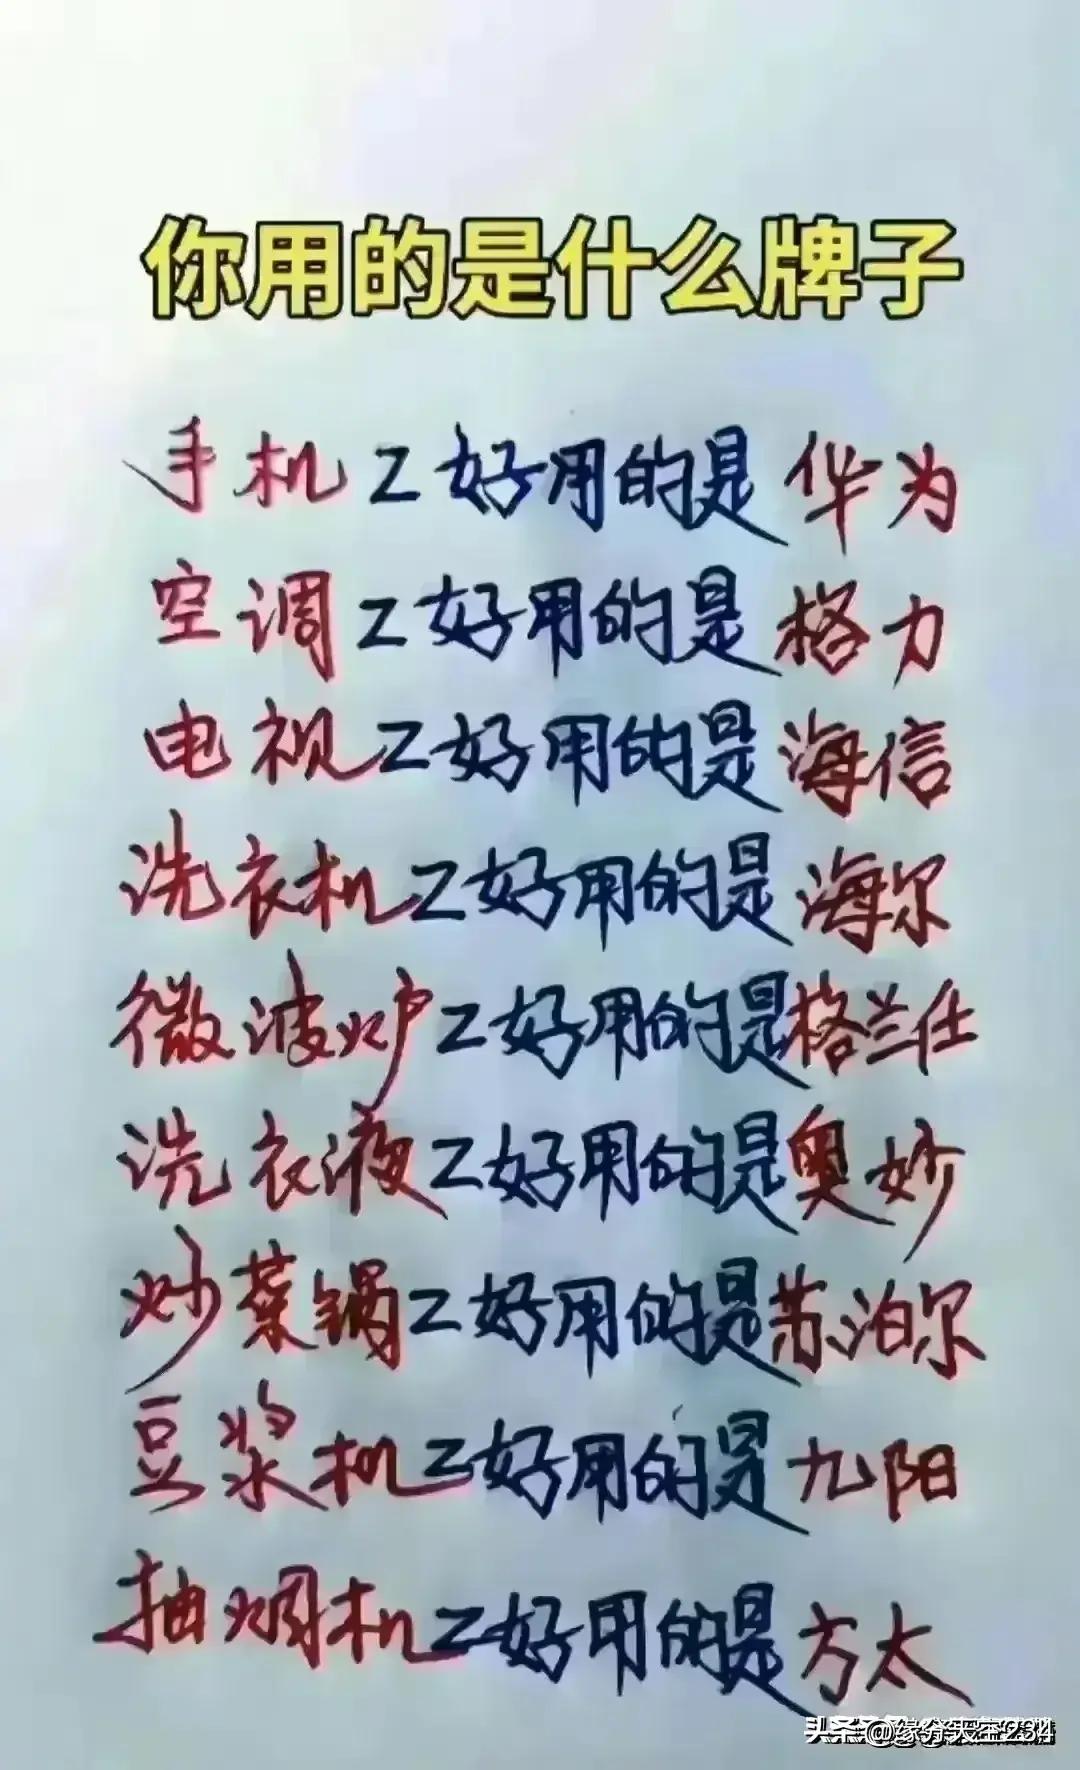 你用的是什么牌子
手机Z好用的是华为
空调Z好用的是格力
电视Z好用的是海信
洗衣机Z好用的是海尔
微波炉Z好用的是格兰仕
洗衣液Z好用的是奥妙
炒菜锅Z好用的是苏泊尔
豆浆机Z好用的是九阳
抽烟机Z好用的是方太
头条 @缘分天空234